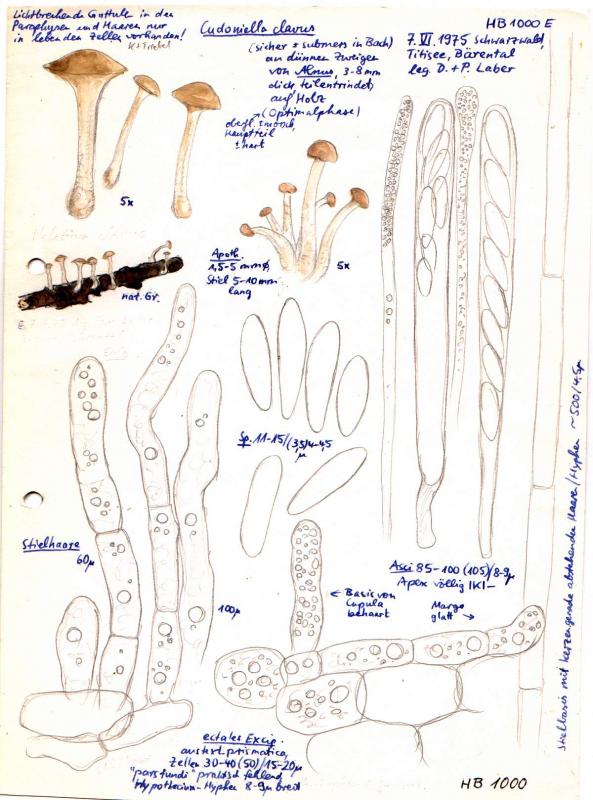 Lichtbrechende Guttulen in den
Paraphysen und Haaren nur
in lebenden Zellen vorhanden!
Cudoniella clavus
(sicher ± submers in Bach)
an dünnen Zweigen
von Alnus, 3-8mm
dick, teilentrindet,
auf Holz
(Optimalphase)
Hauptteil
± hart
HB 1000 E
7.VI.1975 Schwarzwald,
Titisee, Bärental
leg. D.+P. Laber
5x
5x
nat. Gr.
Apoth.
1,5-5 mm ø,
Stiel 5-10mm
lang
Sp. 11-15/(3,5)4-4,5
µ
Stielhaare
60µ
100µ
Asci 85-100 (105)/8-9µ
Apex völlig IKI-
← Basis von
Cupula
behaart
Margo
glatt →
ectales Excip.
austext. prismatica,
Zellen 30-40(50)/15-20µ
"pars fundi" praktisch fehlend,
Hypothecium-Hyphen 8-9µ breit
Stielbasis mit kerzengerade abstehenden Haaren/Hyphen ~500/4,5µ
HB 1000